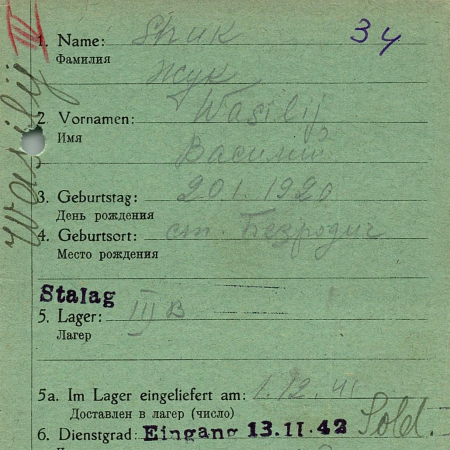 34
IV
Wasilij
1. Name: Shuk
Фамилия
Жук
2. Vornamen: Wasilij
Имя
Василий
3. Geburtstag: 20 1. 1920
День рождения
4. Geburtsort: ст. Безродич
Место рождения
Stalag
5. Lager: III B
Лагер
5a. Im Lager eingeliefert am: 1. 12. 41
Доставлен в лагер (число)
6. Dienstgrad: Eingang 13. II. 42 Sold.